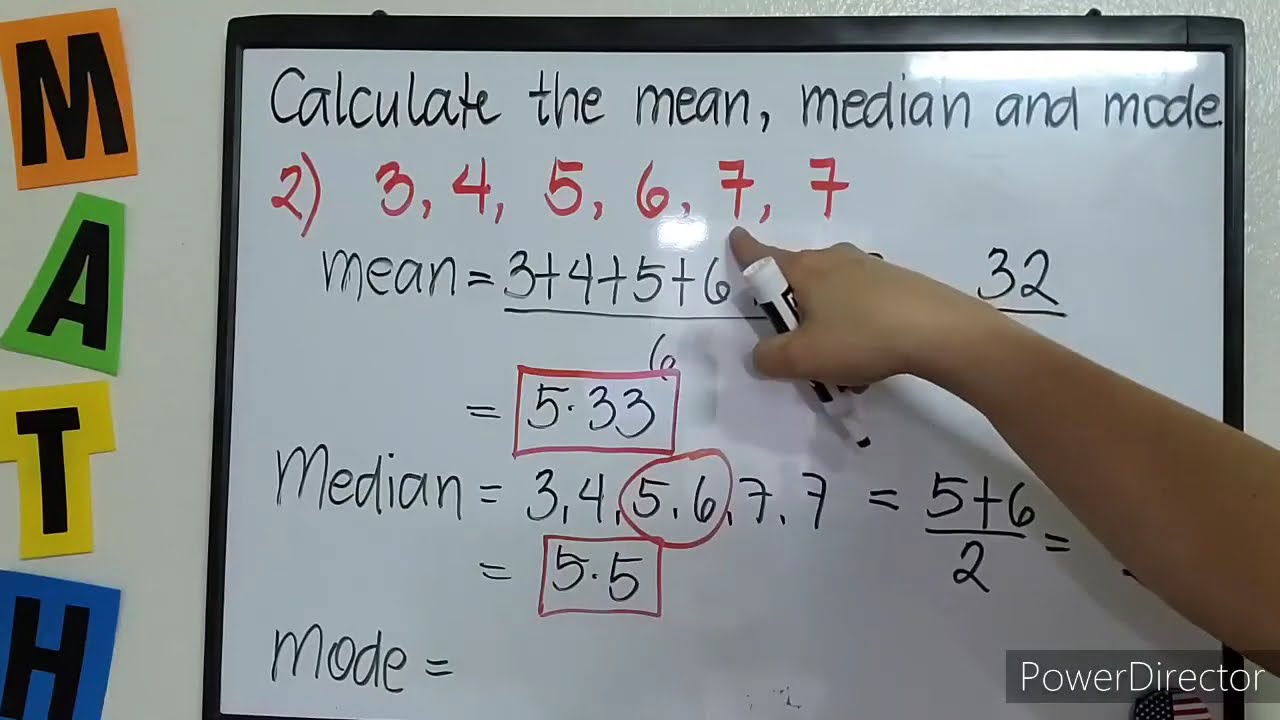 MATH
Calculate the mean, median and mode
2) 3, 4, 5, 6, 7, 7
mean = 3+4+5+6 32
6
= 5.33
Median = 3, 4, 5, 6, 7, 7 = 5+6
2 =
= 5.5
Mode =
PowerDirector